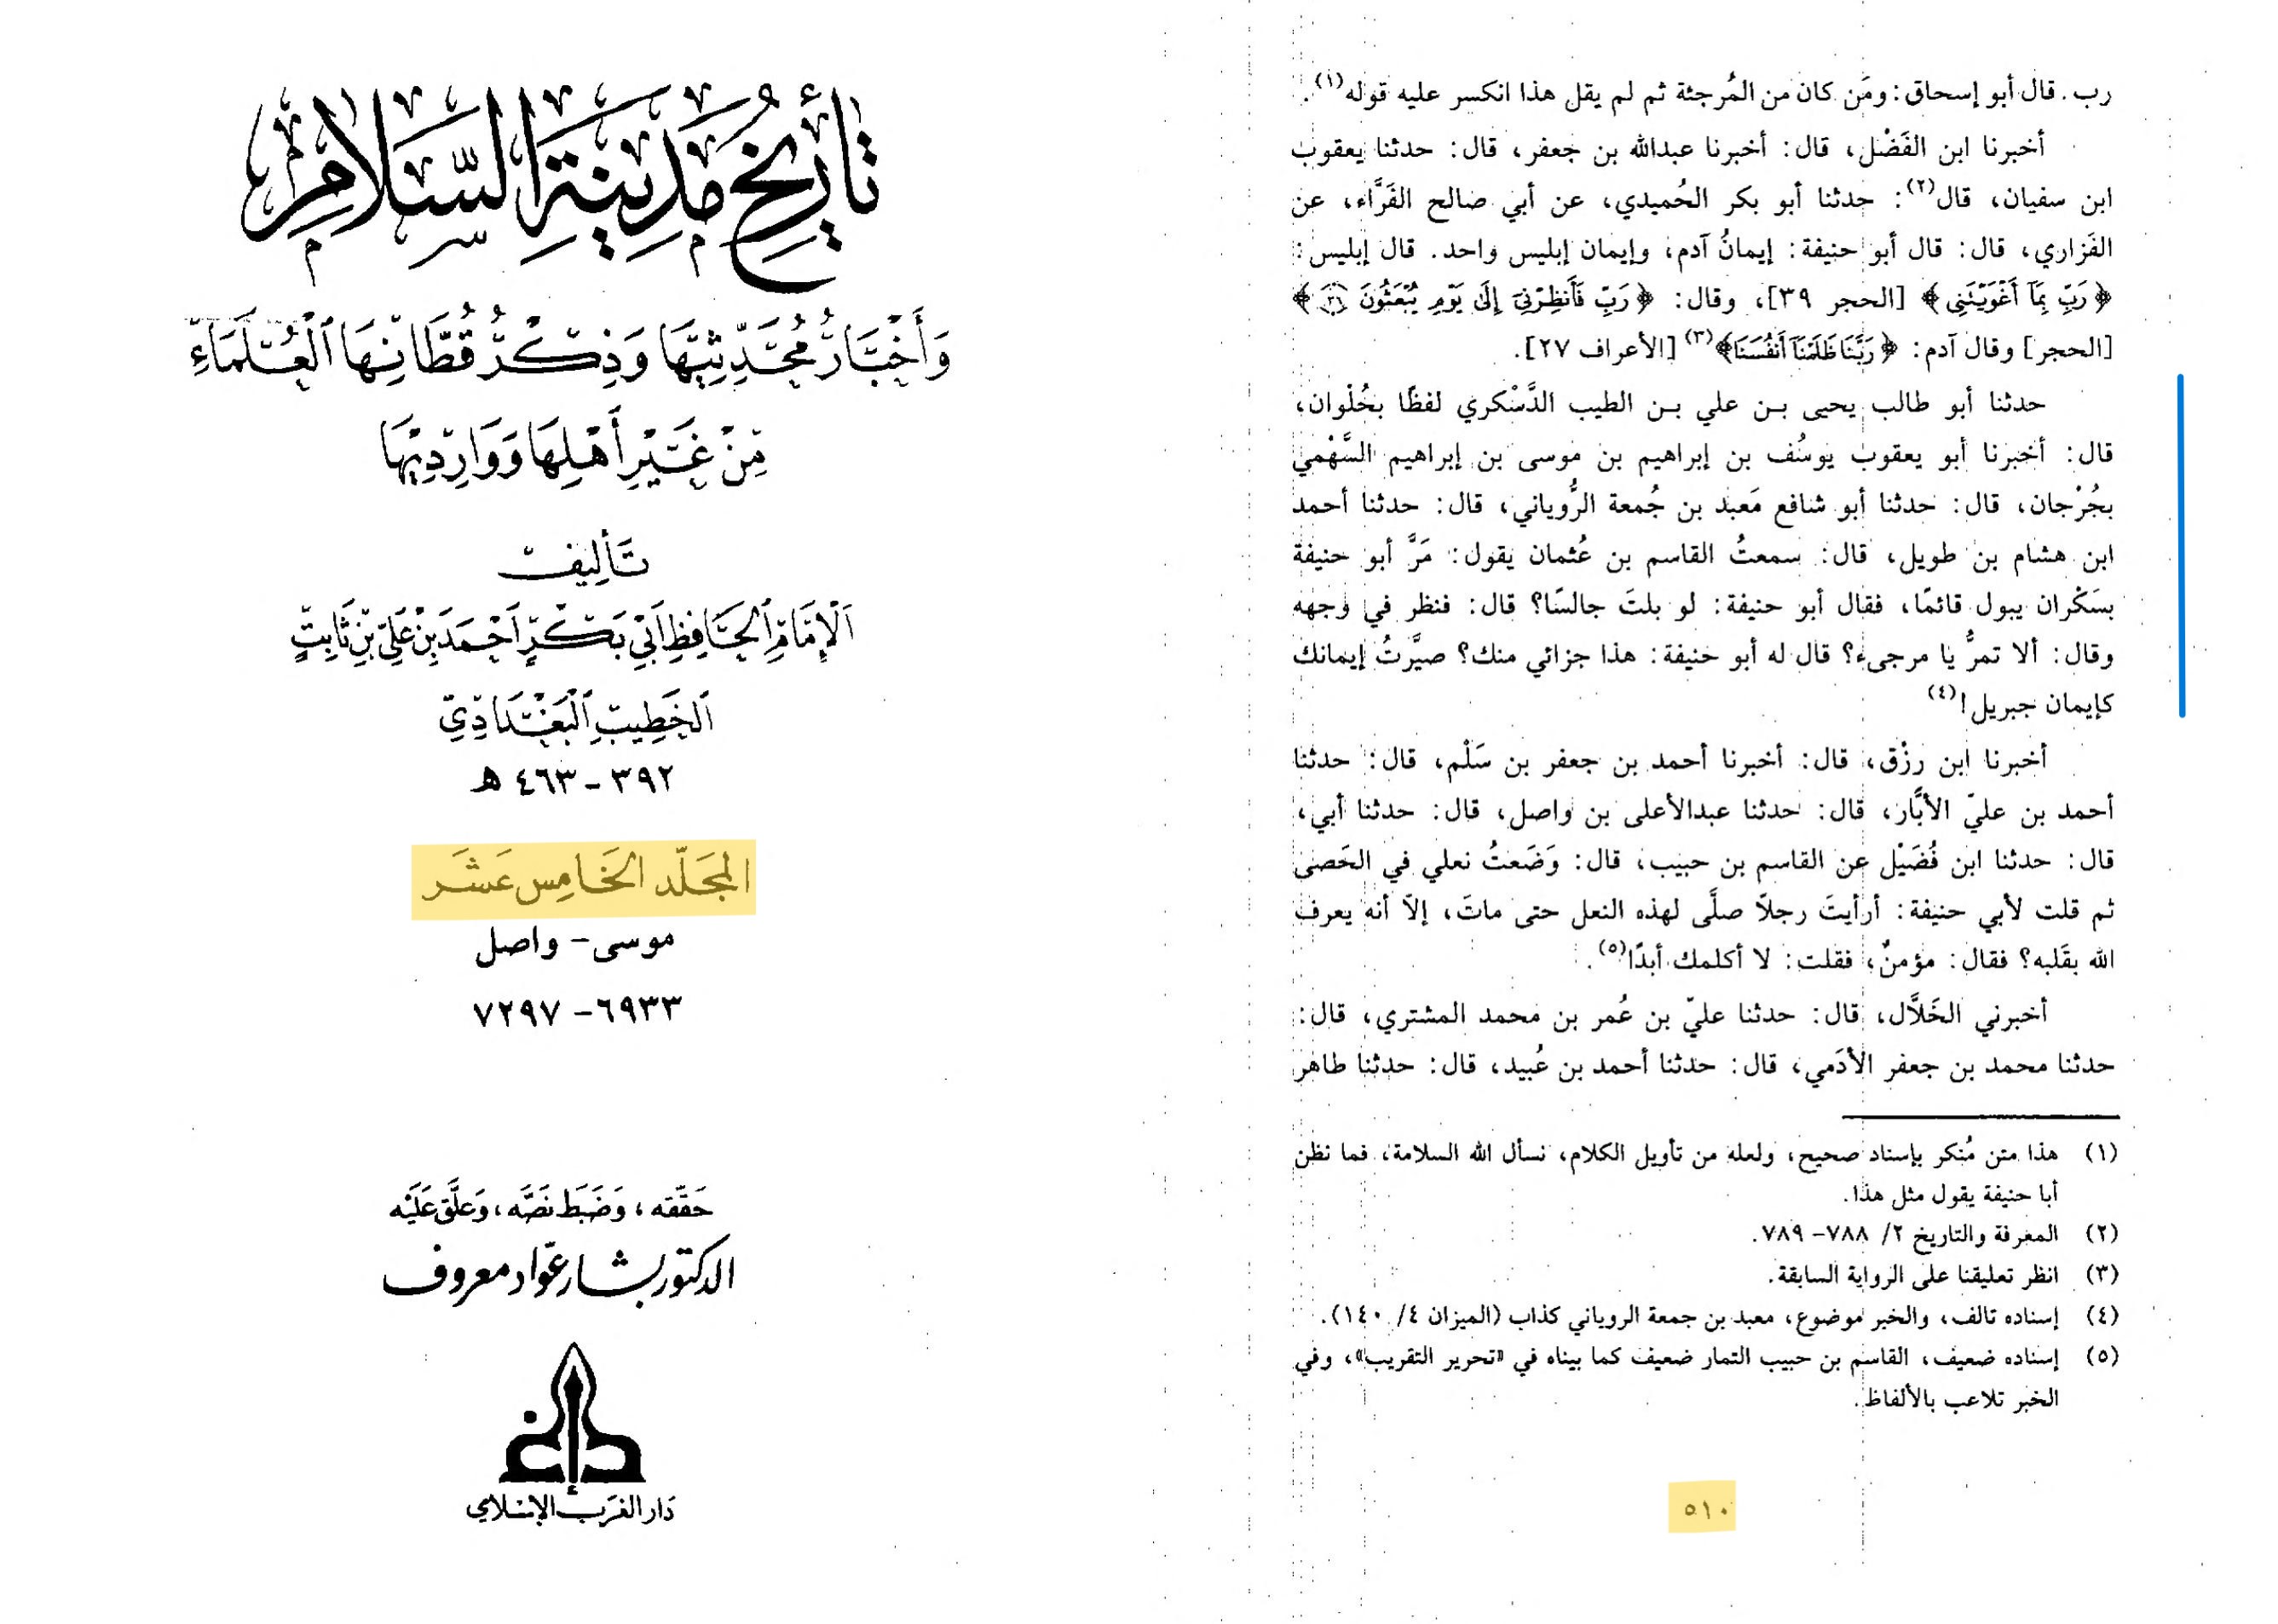 تأريخ مدينة السلام
وَأَخْبَارُ مُحَدِّثِيهَا وَذِكْرُ قُطَّانِهَا العُلَمَاءِ
مِنْ غَيْرِ أَهْلِهَا وَوَارِدِيهَا
تأليف
الإمَامِ الحَافِظِ أَبِي بَكْرٍ أَحْمَدَ بْنِ عَلِيّ بْنِ ثَابِتٍ
الخَطِيبِ البَغْدَادِيِّ
٣٩٢ - ٤٦٣ هـ
المجَلّد الخَامِس عَشَر
موسى - واصل
٦٩٣٣ - ٧٢٩٧
حَقّقه، وَضَبَط نَصَّه، وَعَلَّق عَلَيْه
الدكتور بشار عوّاد معروف
دَار الغَرب الإسْلَامي
رب. قال أبو إسحاق: ومَن كان من المُرجئة ثم لم يقل هذا انكسر عليه قوله(١).
أخبرنا ابن الفَضْل، قال: أخبرنا عبدالله بن جعفر، قال: حدثنا يعقوب
ابن سفيان، قال(٢): حدثنا أبو بكر الحُميدي، عن أبي صالح الفَرَّاء، عن
الفَزاري، قال: قال أبو حنيفة: إيمانُ آدم، وإيمان إبليس واحد. قال إبليس:
﴿رَبِّ بِمَآ أَغْوَيْتَنِي﴾ [الحجر ٣٩]، وقال: ﴿رَبِّ فَأَنظِرْنِيٓ إِلَىٰ يَوْمِ يُبْعَثُونَ ٣٦﴾
[الحجر] وقال آدم: ﴿رَبَّنَا ظَلَمْنَآ أَنفُسَنَا﴾(٣) [الأعراف ٢٧].
حدثنا أبو طالب يحيى بن علي بن الطيب الدَّسْكري لفظًا بحُلْوان،
قال: أخبرنا أبو يعقوب يوسُف بن إبراهيم بن موسى بن إبراهيم السَّهْمي
بجُرْجان، قال: حدثنا أبو شافع مَعبد بن جُمعة الرُّوياني، قال: حدثنا أحمد
ابن هشام بن طويل، قال: سمعتُ القاسم بن عُثمان يقول: مَرَّ أبو حنيفة
بسَكْران يبول قائمًا، فقال أبو حنيفة: لو بلتَ جالسًا؟ قال: فنظر في وجهه
وقال: ألا تمرُّ يا مرجىء؟ قال له أبو حنيفة: هذا جزائي منك؟ صيَّرتُ إيمانك
كإيمان جبريل!(٤)
أخبرنا ابن رزْق، قال: أخبرنا أحمد بن جعفر بن سَلْم، قال: حدثنا
أحمد بن عليّ الأبَّار، قال: حدثنا عبدالأعلى بن واصل، قال: حدثنا أبي،
قال: حدثنا ابن فُضَيْل عن القاسم بن حبيب، قال: وَضَعتُ نعلي في الحَصى
ثم قلت لأبي حنيفة: أرأيتَ رجلاً صلَّى لهذه النعل حتى ماتَ، إلاّ أنه يعرف
الله بقَلبه؟ فقال: مؤمنٌ، فقلت: لا أكلمك أبدًا(٥).
أخبرني الخَلاَّل، قال: حدثنا عليّ بن عُمر بن محمد المشتري، قال:
حدثنا محمد بن جعفر الأدَمي، قال: حدثنا أحمد بن عُبيد، قال: حدثنا طاهر
(١) هذا متن مُنكر بإسناد صحيح، ولعله من تأويل الكلام، نسأل الله السلامة، فما نظن
أبا حنيفة يقول مثل هذا.
(٢) المعرفة والتاريخ ٢/ ٧٨٨- ٧٨٩.
(٣) انظر تعليقنا على الرواية السابقة.
(٤) إسناده تالف، والخبر موضوع، معبد بن جمعة الروياني كذاب (الميزان ٤/ ١٤٠).
(٥) إسناده ضعيف، القاسم بن حبيب التمار ضعيف كما بيناه في «تحرير التقريب»، وفي
الخبر تلاعب بالألفاظ.
٥١٠